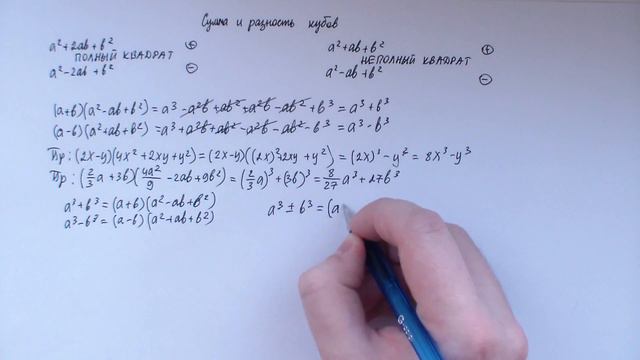 Сумма и разность кубов
a²+2ab+b² (+) a²+ab+b² (+)
ПОЛНЫЙ КВАДРАТ НЕПОЛНЫЙ КВАДРАТ
a²-2ab+b² (-) a²-ab+b² (-)
(a+b)(a²-ab+b²)=a³-a²b+ab²+a²b-ab²+b³=a³+b³
(a-b)(a²+ab+b²)=a³+a²b+ab²-a²b-ab²-b³=a³-b³
Пр: (2x-y)(4x²+2xy+y²)=(2x-y)((2x)²+2xy+y²)=(2x)³-y³=8x³-y³
Пр: (2/3a+3b)(4a²/9-2ab+9b²)=(2/3a)³+(3b)³=8/27a³+27b³
a³+b³=(a+b)(a²-ab+b²) a³±b³=(a
a³-b³=(a-b)(a²+ab+b²)